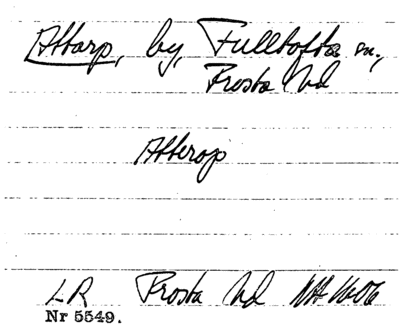 Attarp, by, Fulltofta sn.,
Frosta hd
Atterop
LR Frosta hd
Nr 5549.